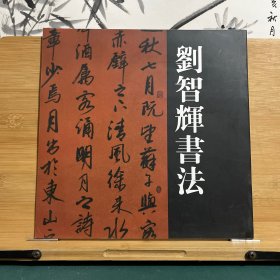 劉智輝書法
秋七月既望蘇子與客
赤壁之下清風徐来水
酒屬客誦明月之詩
章少焉月出於東山之